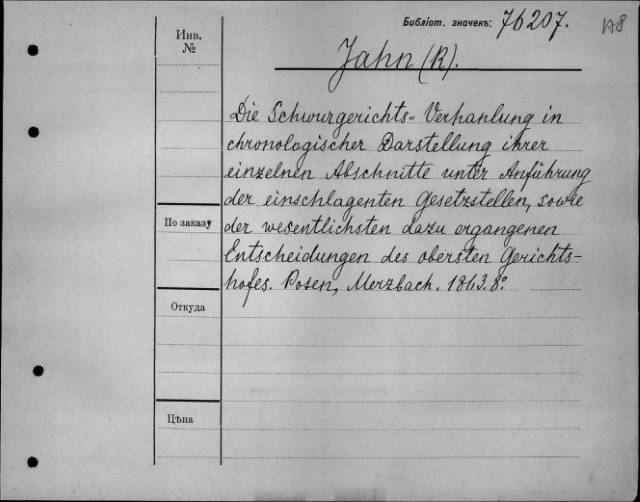 Библіот. значекъ: 76207.
Инв.
№
Jahn (R).
Die Schwurgerichts= Verhanlung in
chronologischer Darstellung ihrer
einzelnen Abschnitte unter Anführung
der einschlagenten Gesetzstellen, sowie
По заказу
der wesentlichsten dazu ergangenen
Entscheidungen des obersten Gerichts-
hofes. Posen, Merzbach. 1863. 8º.
Откуда
Цѣна